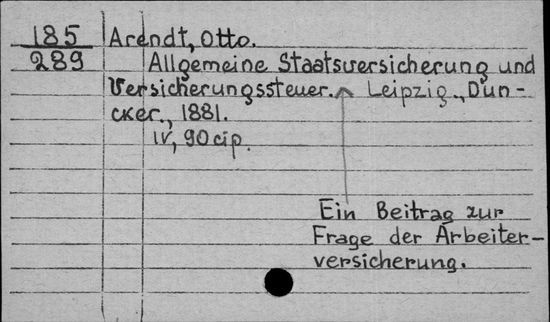 185
289
Arendt, Otto.
Allgemeine Staatsversicherung und
Versicherungssteuer. Leipzig., Dun-
cker., 1881.
IV, 90 cip.
Ein Beitrag zur
Frage der Arbeiter-
versicherung.